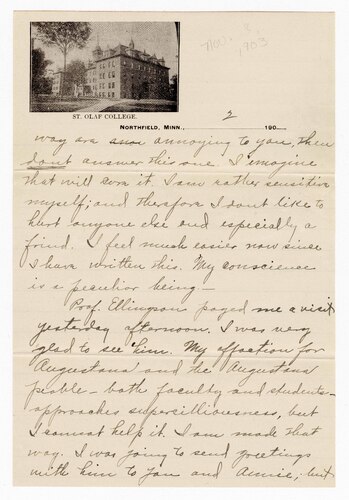 Nov. 8, 1903
ST. OLAF COLLEGE.
NORTHFIELD, MINN., 2 190
way are annoying to you, then
dont answer this one I emagine
that will do it. I am rather sensitive
myself; and therefore I dont like to
hurt anyone else and especially a
frind. I feel much easier now since
I have written this. My conscience
is a peculior being—
Prof. Ellingson payed me a visit
yesterday afternoon. I was very
glad to see him. My affaction for
Augustana and the Augustana
peoble — both faculty and students—
approaches supersilliousness, but
I cannot help it. I am made that
way. I was going to send greetings
with him to you and Annie, but